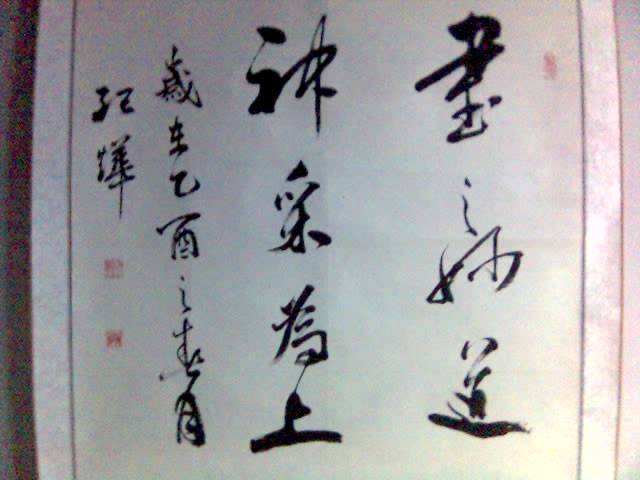 書之妙道
神采為上
歲在乙酉之春月
紀燁